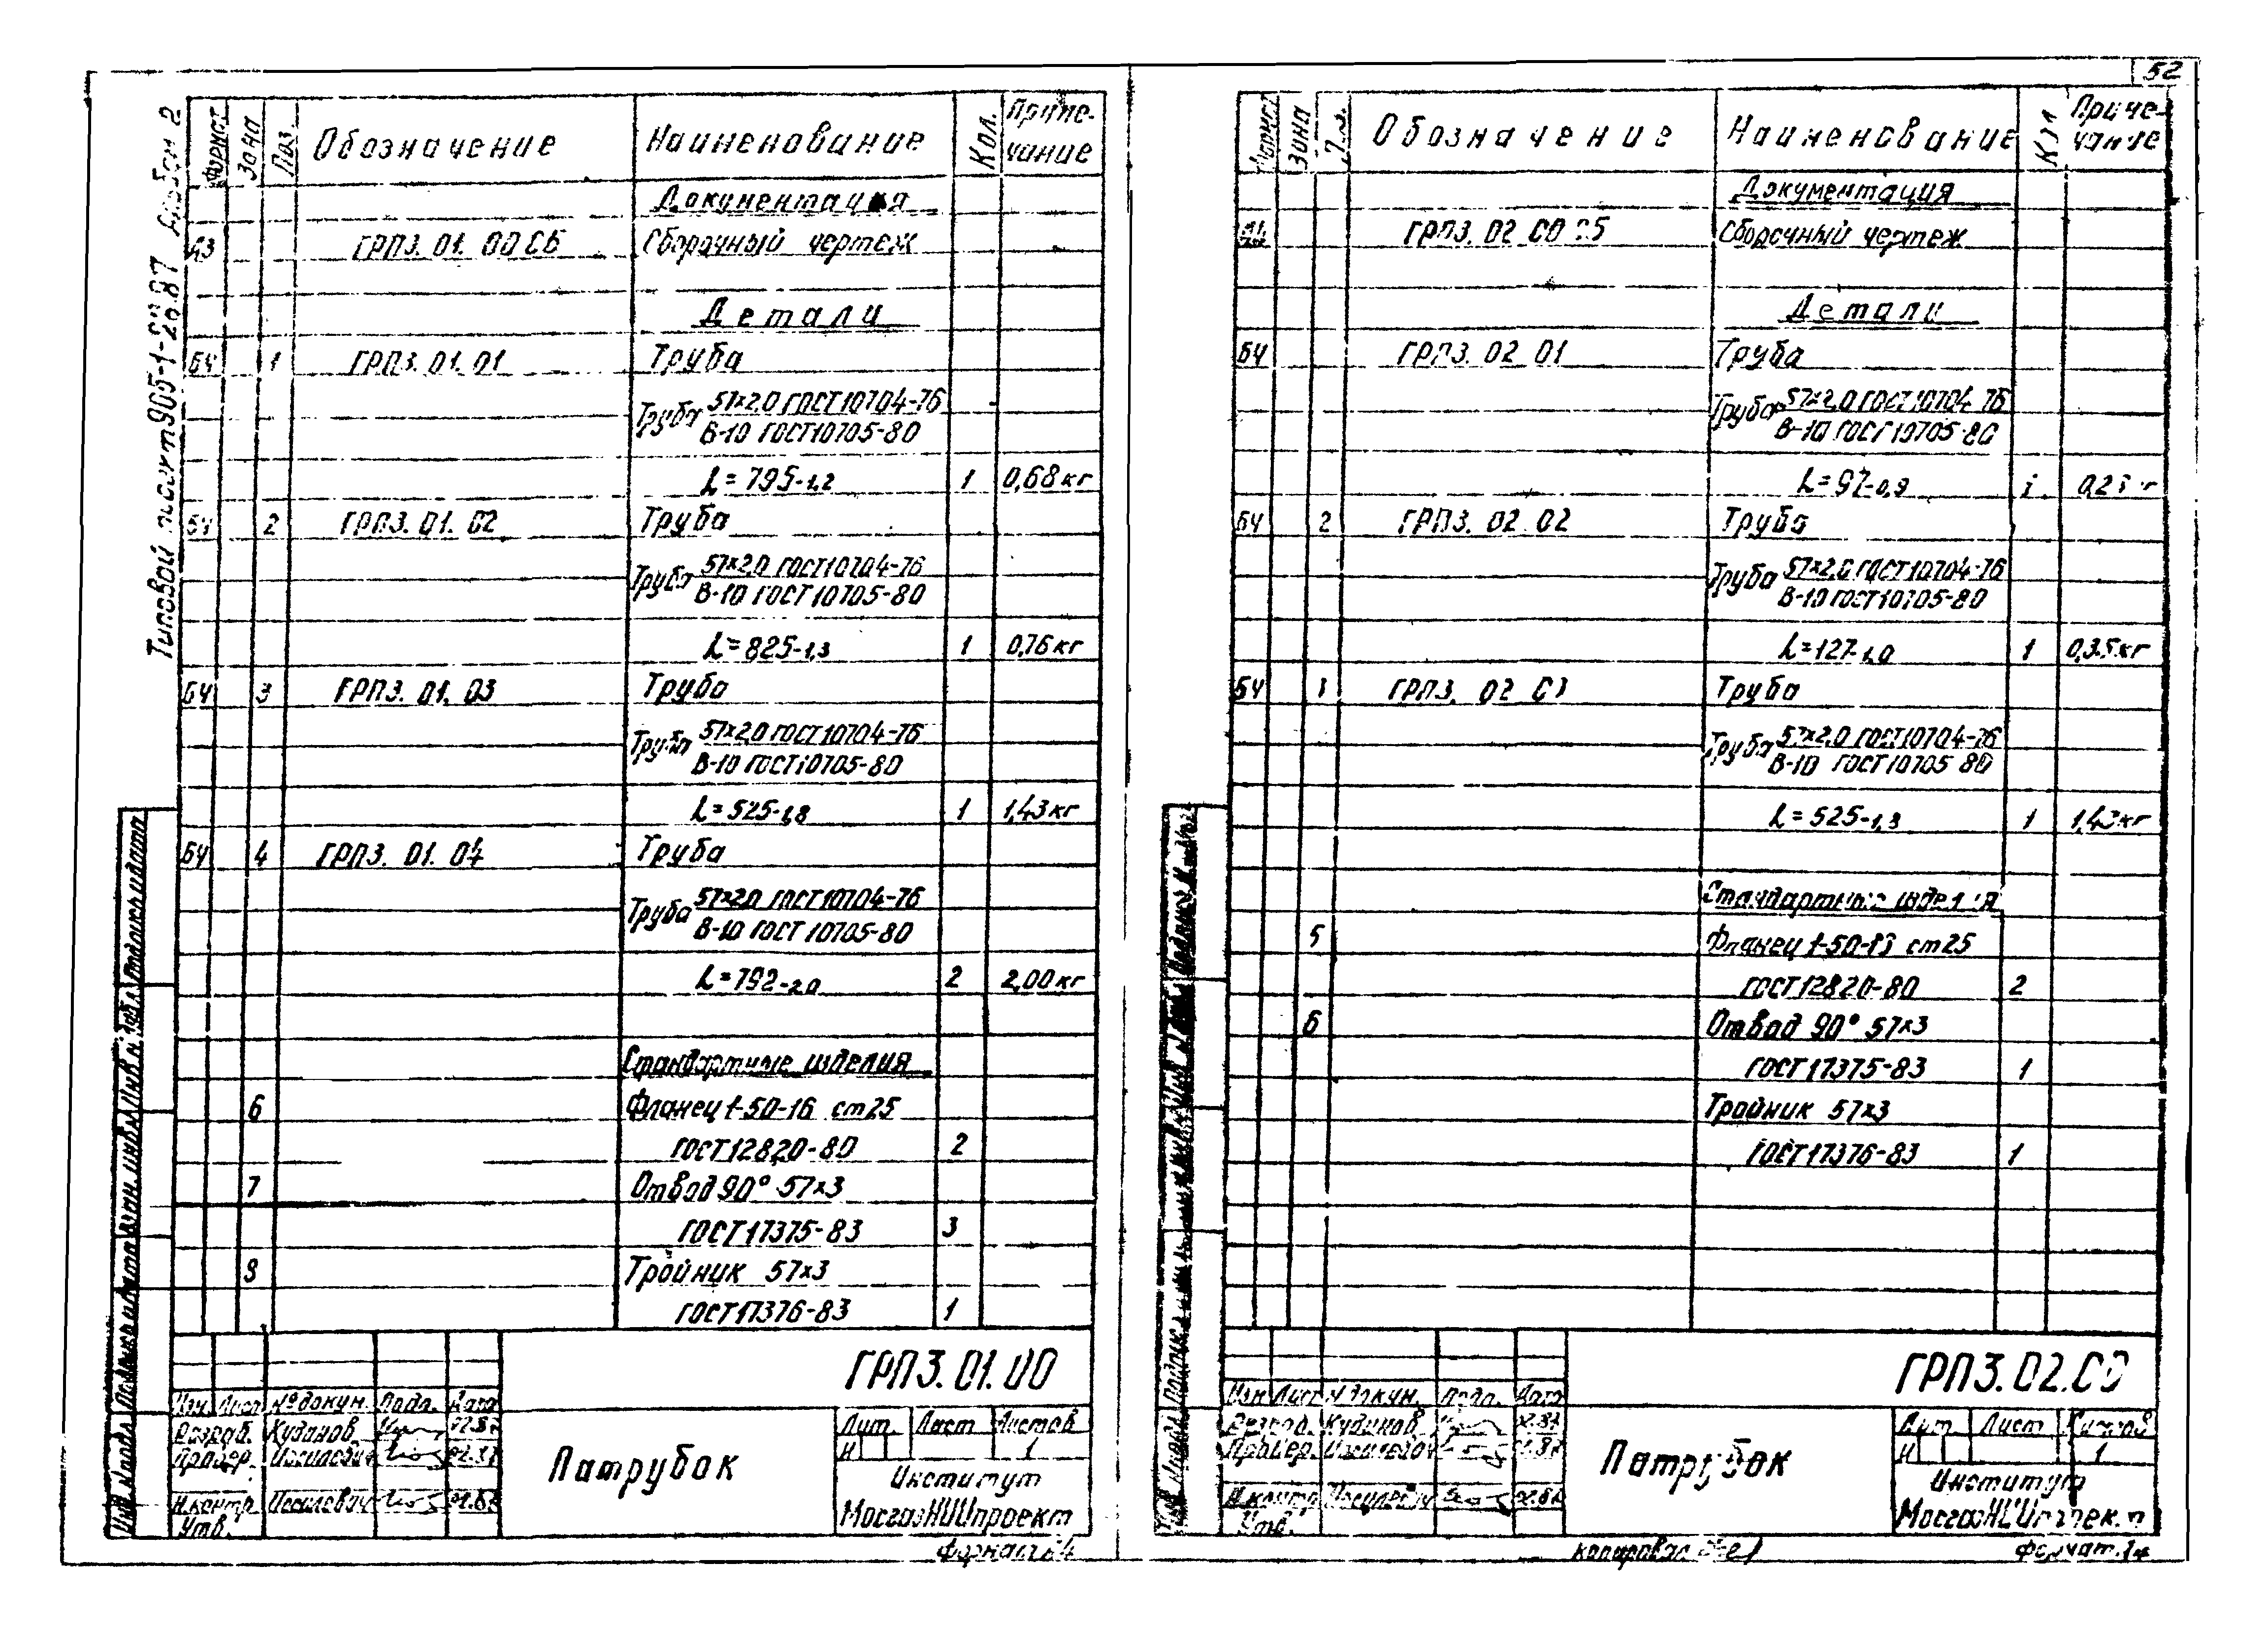 52
Типовой проект 905-1-28.87 Альбом 2
Формат Зона Поз. Обозначение Наименование Кол. Приме-
чание
Документация
А3 ГРПЗ. 01. 00 СБ Сборочный чертеж
Детали
БЧ 1 ГРПЗ. 01. 01 Труба
Труба 57×2,0 ГОСТ 10704-76
В-10 ГОСТ 10705-80
L=795-1,2 1 0,68 кг
БЧ 2 ГРПЗ. 01. 02 Труба
Труба 57×2,0 ГОСТ 10704-76
В-10 ГОСТ 10705-80
L=825-1,3 1 0,76 кг
БЧ 3 ГРПЗ. 01. 03 Труба
Труба 57×2,0 ГОСТ 10704-76
В-10 ГОСТ 10705-80
L=525-1,8 1 1,43 кг
БЧ 4 ГРПЗ. 01. 04 Труба
Труба 57×2,0 ГОСТ 10704-76
В-10 ГОСТ 10705-80
L=792-2,0 2 2,00 кг
Стандартные изделия
6 Фланец 1-50-16 ст25
ГОСТ 12820-80 2
7 Отвод 90° 57×3
ГОСТ 17375-83 3
8 Тройник 57×3
ГОСТ 17376-83 1
ГРПЗ. 01. 00
Изм. Лист № докум. Подп. Дата
Разраб. Кудинов
Провер.
Н.контр.
Утв.
Патрубок
Лит. Лист Листов
И 1
Институт
МосгазНИИпроект
Формат А4
Формат Зона Поз. Обозначение Наименование Кол Приме-
чание
Документация
ГРПЗ. 02 00 СБ Сборочный чертеж
Детали
БЧ ГРПЗ. 02 01 Труба
Труба 57×2,0 ГОСТ 10704-76
В-10 ГОСТ 10705-80
L=97-0,9 1
БЧ 2 ГРПЗ. 02 02 Труба
Труба 57×2,0 ГОСТ 10704-76
В-10 ГОСТ 10705-80
L=127-1,0 1 0,35 кг
БЧ 3 ГРПЗ. 02 03 Труба
Труба 57×2,0 ГОСТ 10704-76
В-10 ГОСТ 10705-80
L=525-1,3 1 1,43 кг
Стандартные изделия
5 Фланец 1-50-16 ст25
ГОСТ 12820-80 2
6 Отвод 90° 57×3
ГОСТ 17375-83 1
Тройник 57×3
ГОСТ 17376-83 1
ГРПЗ. 02. 00
Изм Лист № докум. Подп. Дата
Разраб. Кудинов
Провер.
Н.контр
Утв.
Патрубок
Лит. Лист Листов
И 1
Институт
МосгазНИИпроект
Копировал
Формат А4